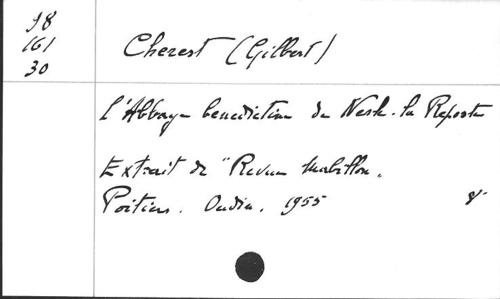 98
161
30
Cherest (Gilbert)
L'Abbaye bénédictine de Nesle-la Reposte
Extrait de "Revue Mabillon"
Poitiers. Oudin. 1955 8°